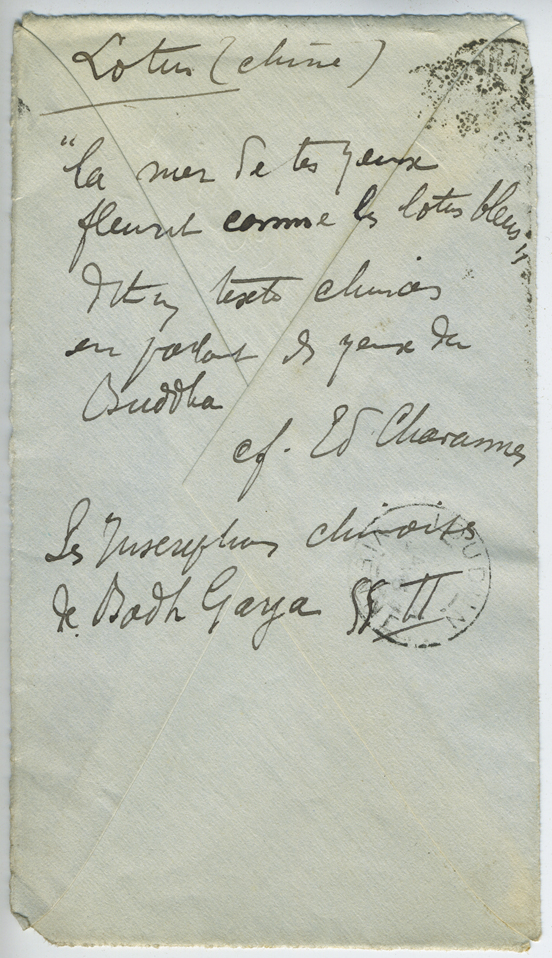 Lotus (chine)
"la mer de tes yeux
fleurit comme les lotus bleus"
dit un texte chinois
en parlant des yeux du
Buddha
cf. Ed Chavannes
Les Inscriptions chinoises
de Bodh Gaya §§ II